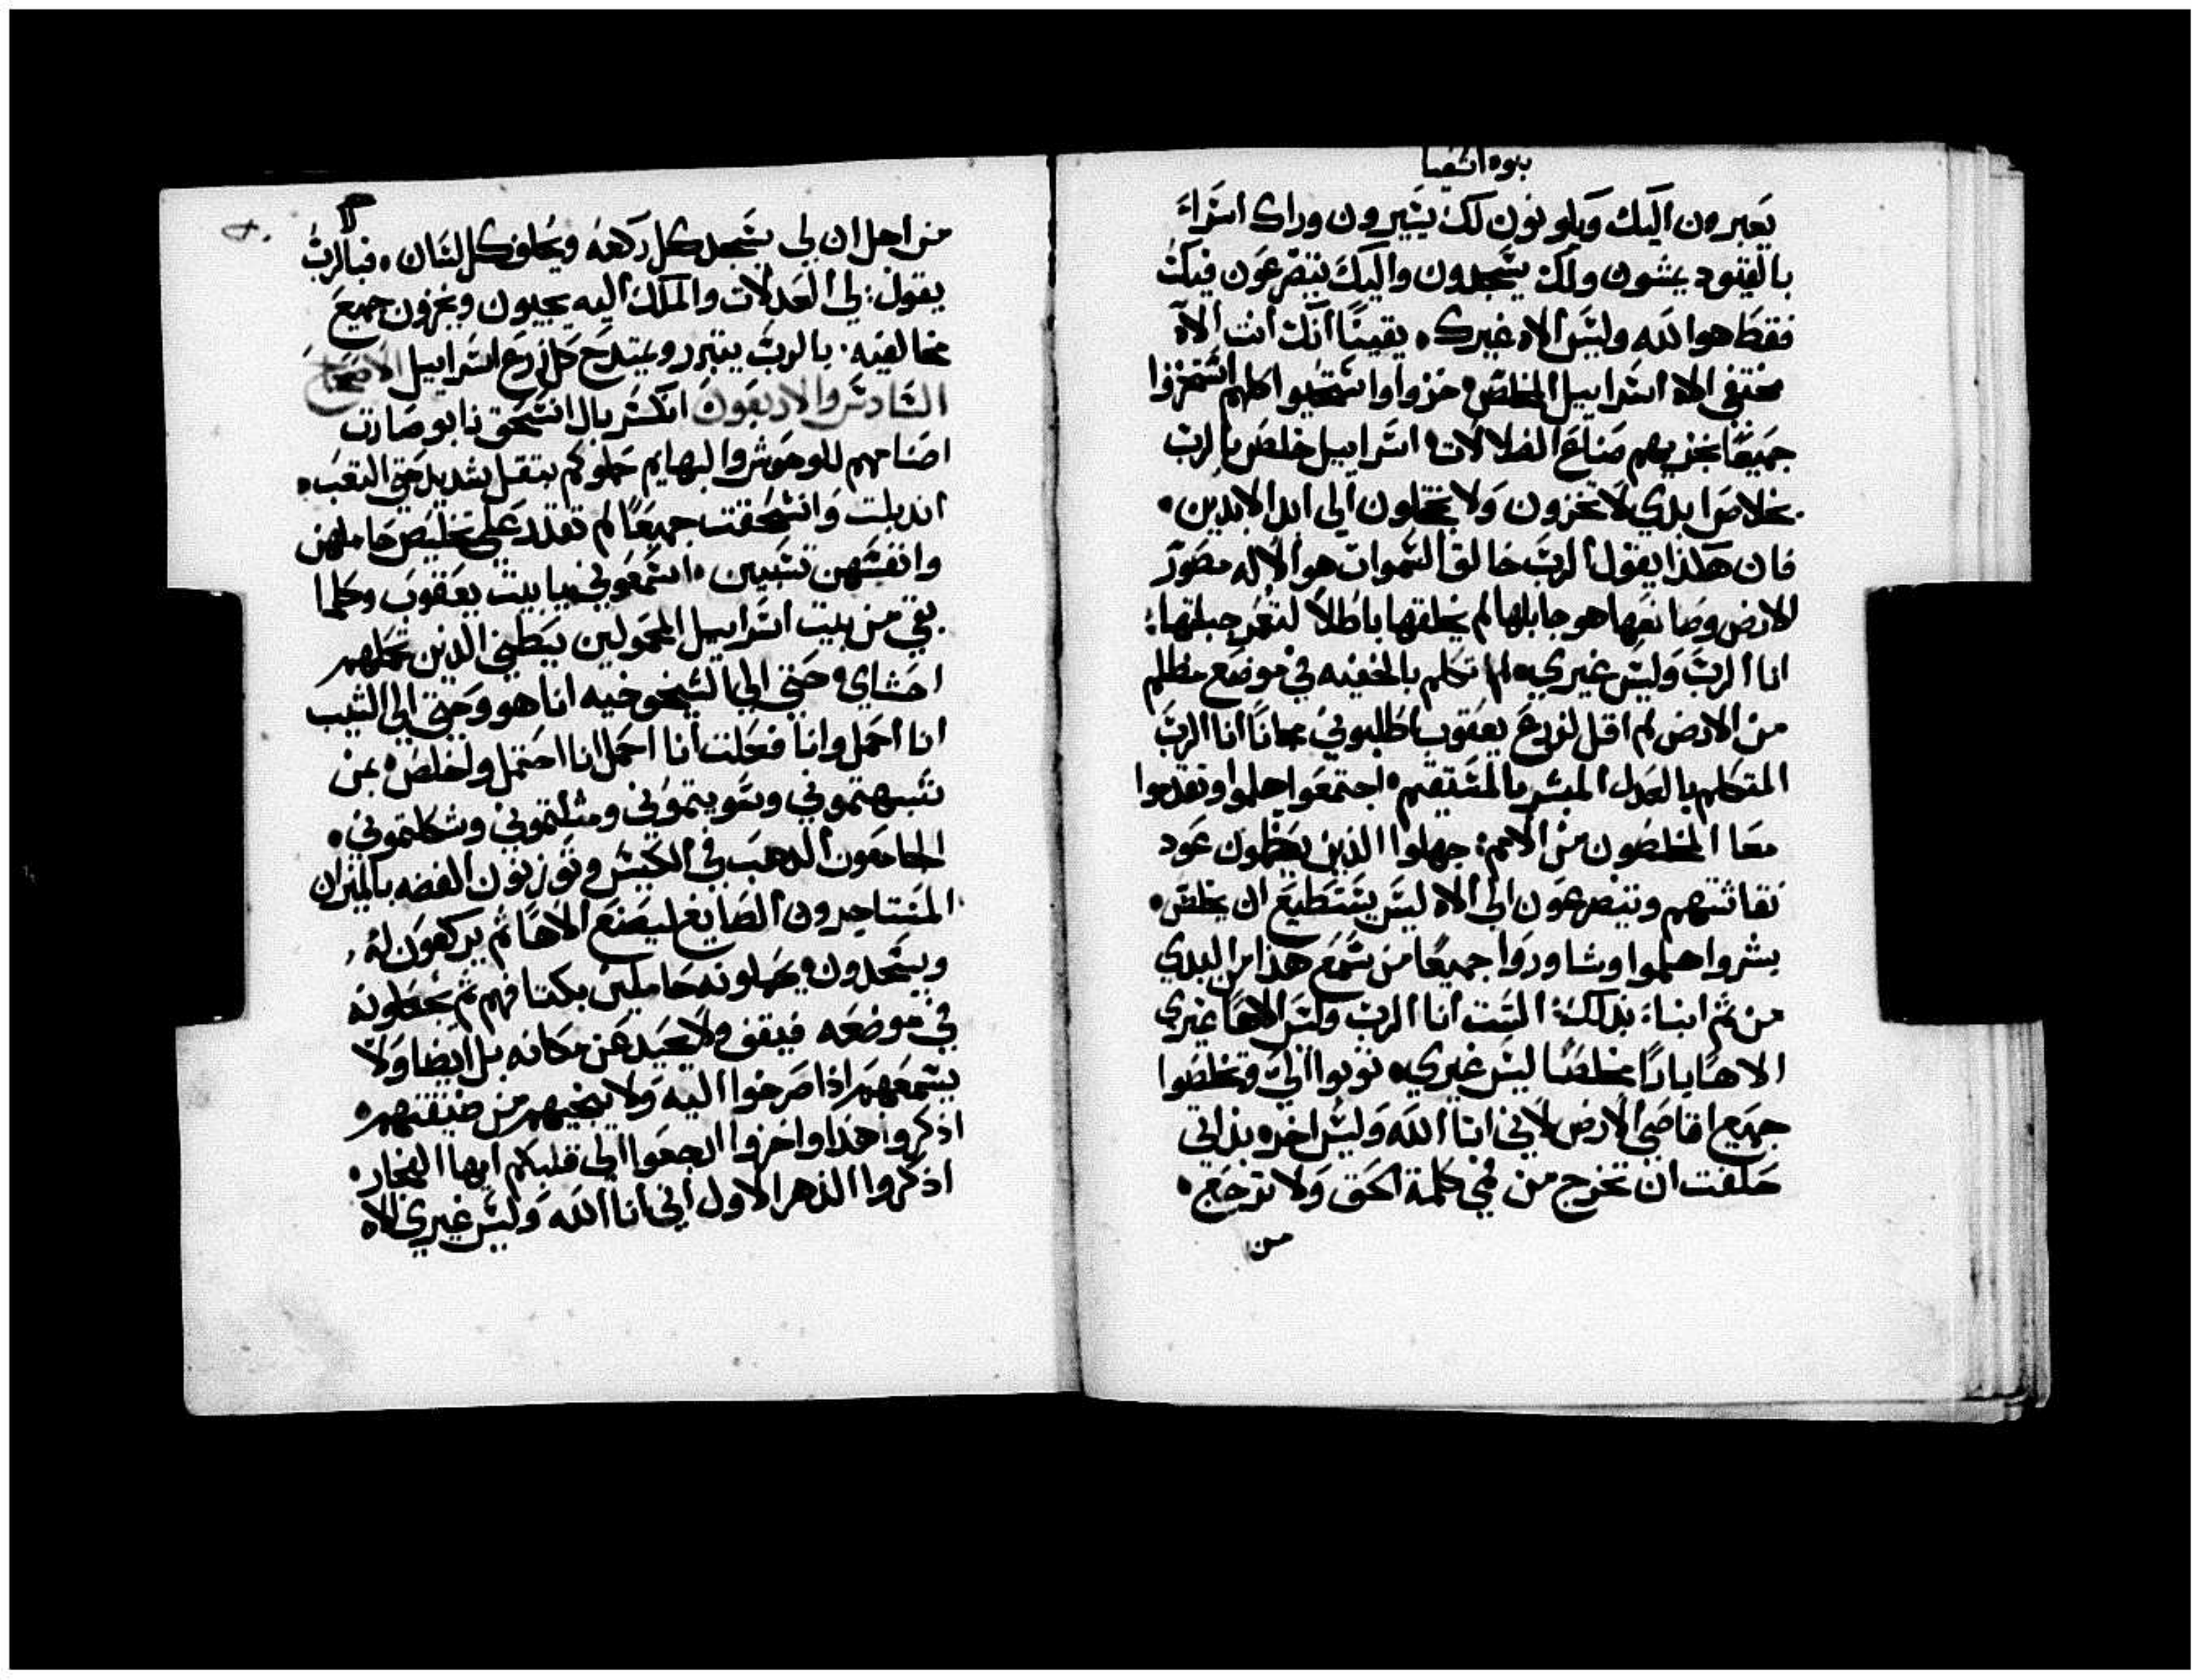 نبوه اشعيا
يعبرون اليك ويكونون لك يسيرون وراك اسراء
بالقيود يمشون ولك يسجدون واليك يتضرعون فيك
فقط هو الله وليس الاه غيرك، يقينًا انك انت الاه
مختفي الاه اسراييل المخلص، خزوا واستحيوا كلهم اشمئزوا
جميعًا بخزيهم صناع الضلالات، اسراييل خلص بالرب
خلاصًا ابدي لا تخزون ولا تخجلون الي ابد الابدين،
فان هكذا يقول الرب خالق السموات هو الاله مصور
الارض وصانعها هو جابلها لم يخلقها باطلاً لتعمر جبلتها:
انا الرب وليس غيري، لم اتكلم بالخفيه في موضع مظلم
من الارض لم اقل لزرع يعقوب اطلبوني مجانًا انا الرب
المتكلم بالعدل المبشر بالمستقيم، اجتمعوا هلموا وتقدموا
معا المخلصون من الامم: جهلوا الذين يحملون عود
نقاشتهم ويتضرعون الي الاه ليس يستطيع ان يخلص،
بشروا هلموا وشاوروا جميعًا من سمع هذا من البدي
من ثم انبـاء بذلك: الست انا الرب وليس الاهًا غيري
الاهًا بارًا مخلصًا ليس غيري، توبوا اليّ وتخلصوا
جميع اقاصي الارض لاني انا الله وليس اخر، بذاتي
حلفت ان تخرج من فمي كلمة الحق ولا ترجع،
من
من اجل ان لي يسجد كل ركبه ويحلف كل لسان، فبالرب
يقول: لي العدلات والملك اليه يجيون ويخزون جميع
مخالفيه، بالرب يتبرر ويمتدح كل زرع اسراييل الاصحاح
السادس والاربعون انكسر بال انسحق نابو صارت
اصنامهم للوحوش والبهايم حملوكم بتقل شديد حتي التعب،
انذبلت وانسحقت جميعًا لم تقدر علي تخليص حاملهن
وانفسهن تسبين، اسمعوني يا بيت يعقوب وكلما
بقي من بيت اسراييل المحمولين ببطني الذين تحملهم
احشاي، حتي الي الشيخوخيه انا هو وحتي الي الشيب
انا احمل وانا فعلت انا احمل انا احتمل واخلص، بمن
شبهتموني وسويتموني ومثلتموني وشكلتموني،
الجامعون الذهب في الكيس وتوزنون الفضه بالميزان
المستاجرون الصايغ ليصنع الاهًا ثم يركعون له،
ويسجدون، يحملونه حاملين بكتافهم ثم يجعلونه
في موضعه فيقف ولا يحيد عن مكانه بل ايضا ولا
يسمعهم اذا صرخوا اليه ولا ينجيهم من ضيقتهم،
اذكروا هذا واخزوا ارجعوا الي قلبكم ايها الفجار،
اذكروا الدهر الاول اني انا الله وليس غيري الاه